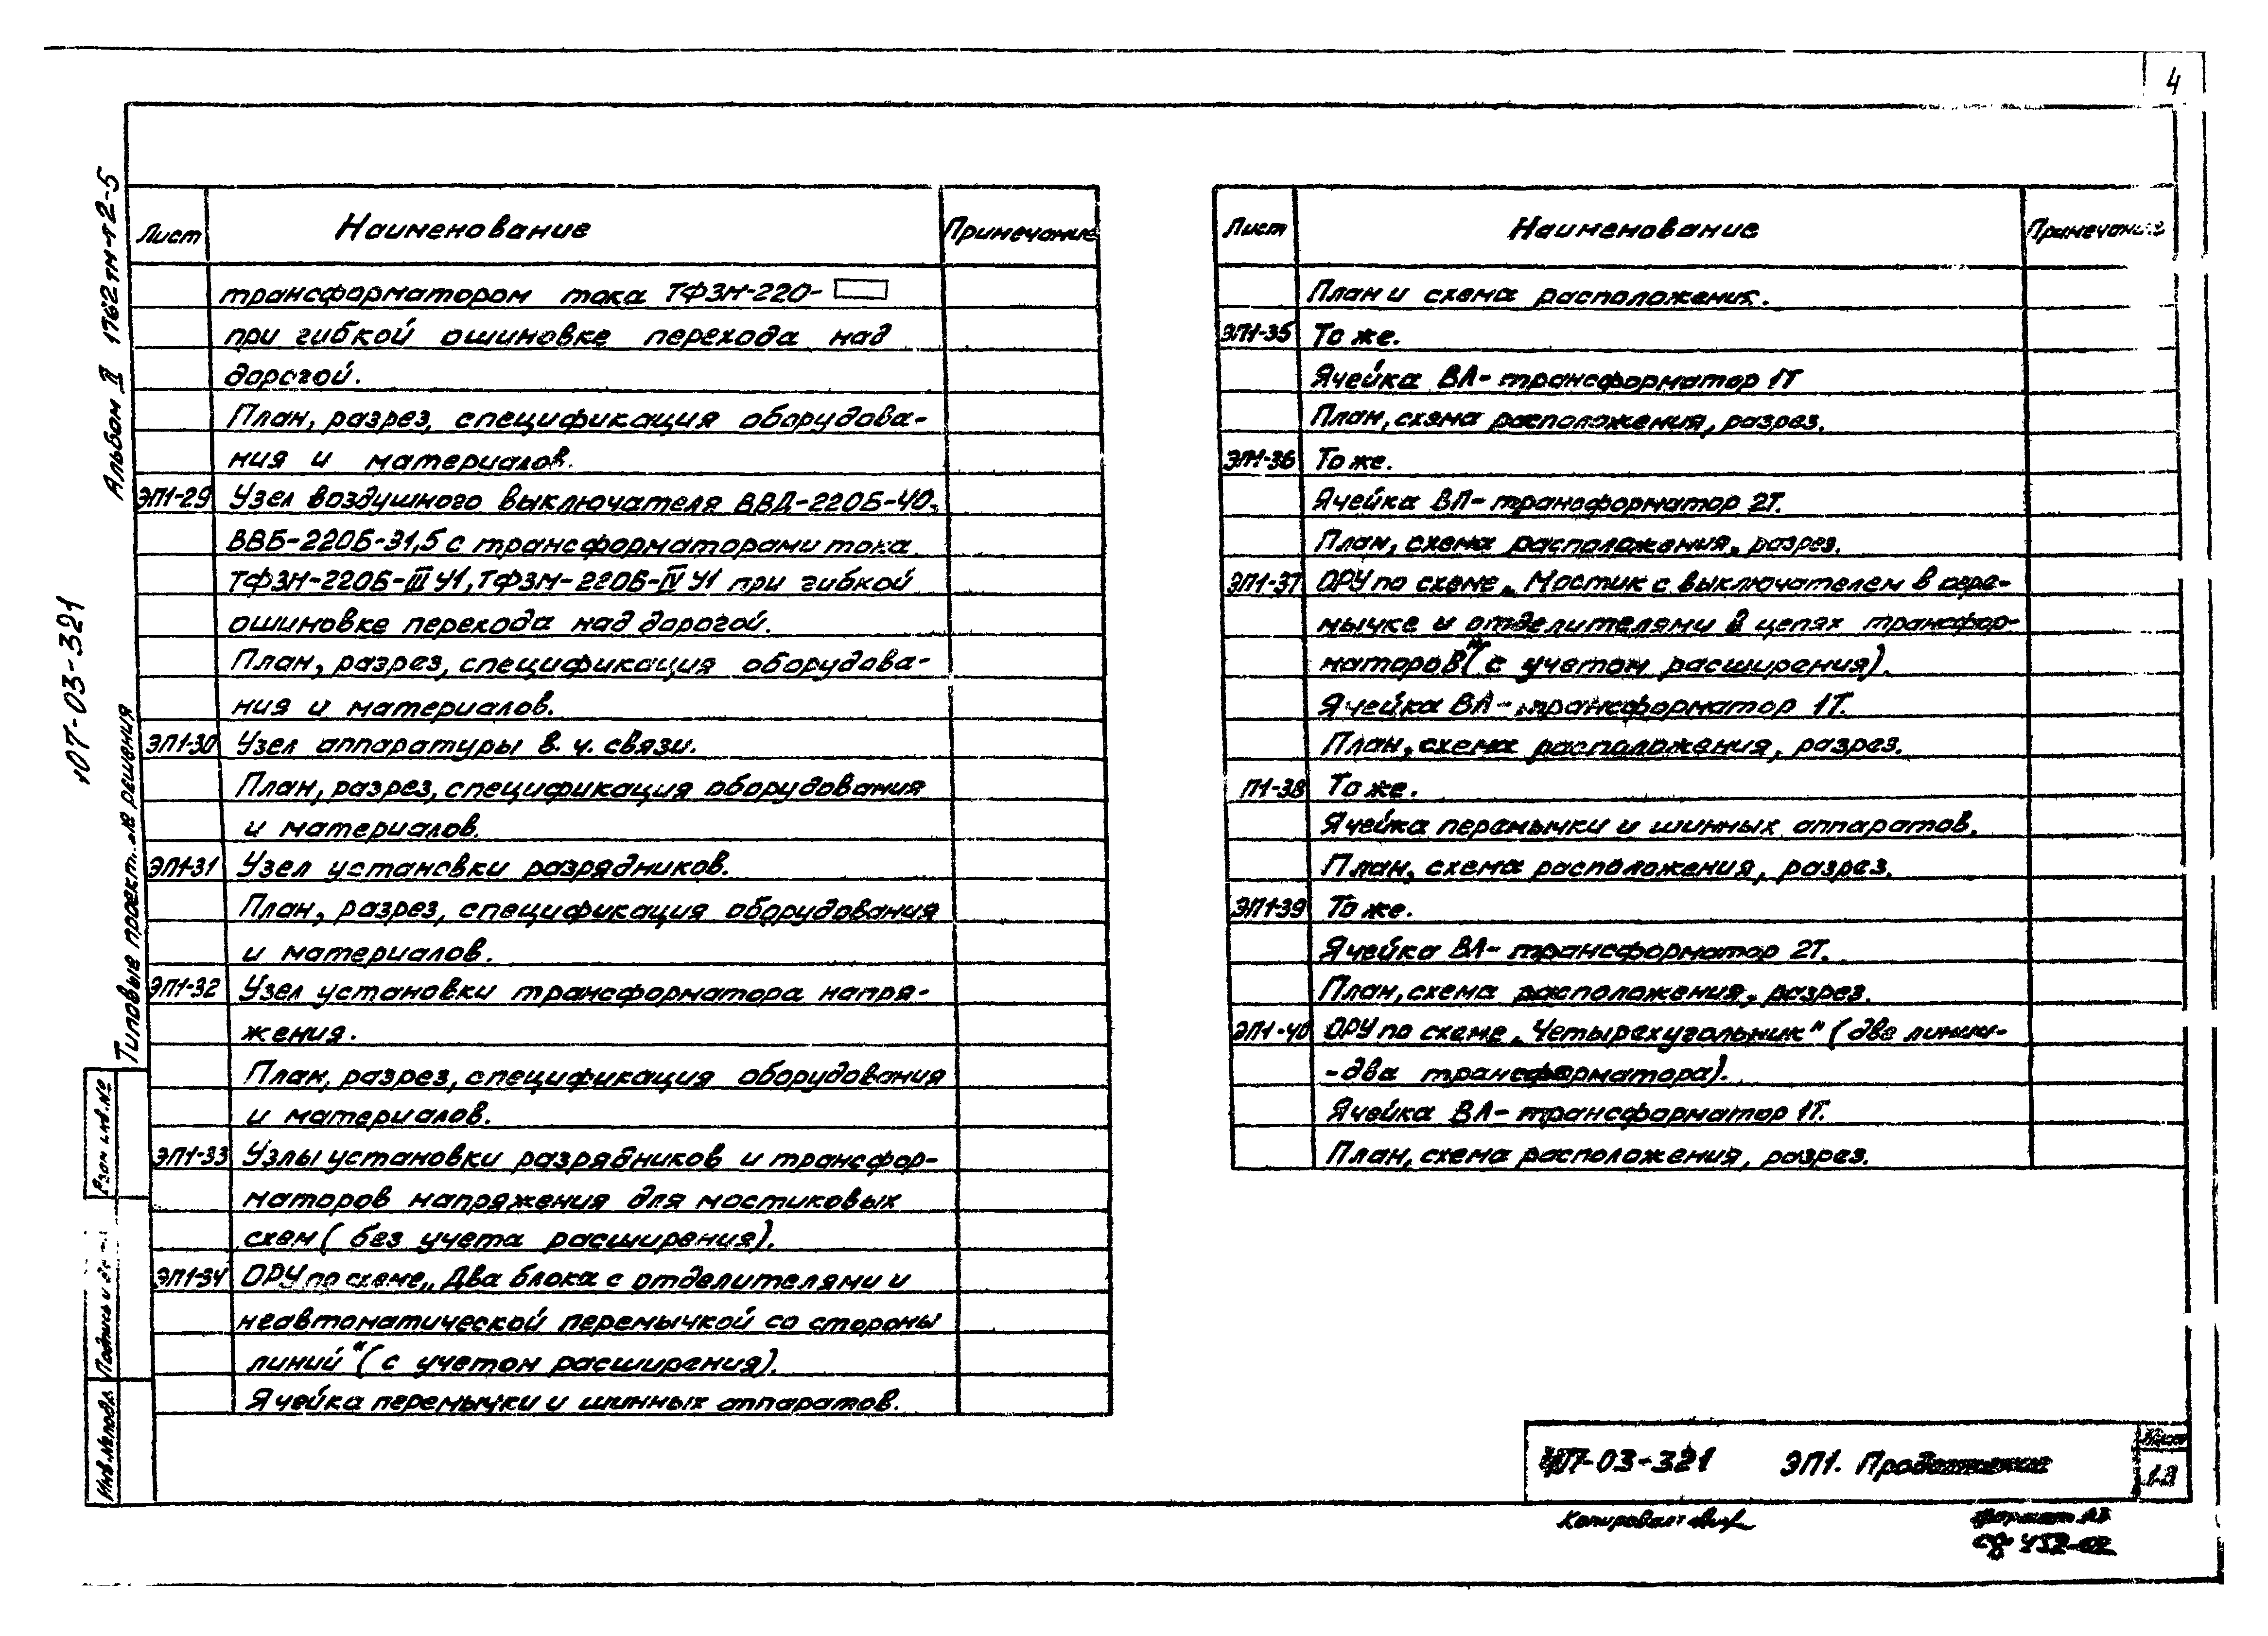 4
Лист Наименование Примечание
трансформатором тока ТФЗМ-220-
при гибкой ошиновке перехода над
дорогой.
План, разрез, спецификация оборудова-
ния и материалов.
ЭП1-29 Узел воздушного выключателя ВВД-220Б-40,
ВВБ-220Б-31,5 с трансформаторами тока
ТФЗМ-220Б-III У1, ТФЗМ-220Б-IV У1 при гибкой
ошиновке перехода над дорогой.
План, разрез, спецификация оборудова-
ния и материалов.
ЭП1-30 Узел аппаратуры в. ч. связи.
План, разрез, спецификация оборудования
и материалов.
ЭП1-31 Узел установки разрядников.
План, разрез, спецификация оборудования
и материалов.
ЭП1-32 Узел установки трансформатора напря-
жения.
План, разрез, спецификация оборудования
и материалов.
ЭП1-33 Узлы установки разрядников и трансфор-
маторов напряжения для мостиковых
схем (без учета расширения).
ЭП1-34 ОРУ по схеме „Два блока с отделителями и
неавтоматической перемычкой со стороны
линий" (с учетом расширения).
Ячейка перемычки и шинных аппаратов.
Лист Наименование Примечание
План и схема расположения.
ЭП1-35 То же.
Ячейка ВЛ-трансформатор 1Т
План, схема расположения, разрез.
ЭП1-36 То же.
Ячейка ВЛ-трансформатор 2Т.
План, схема расположения, разрез.
ЭП1-37 ОРУ по схеме „Мостик с выключателем в пере-
мычке и отделителями в цепях трансфор-
маторов" (с учетом расширения).
Ячейка ВЛ-трансформатор 1Т.
План, схема расположения, разрез.
П1-38 То же.
Ячейка перемычки и шинных аппаратов.
План, схема расположения, разрез.
ЭП1-39 То же.
Ячейка ВЛ-трансформатор 2Т.
План, схема расположения, разрез.
ЭП1-40 ОРУ по схеме „Четырехугольник" (две линии-
-два трансформатора).
Ячейка ВЛ-трансформатор 1Т.
План, схема расположения, разрез.
407-03-321 ЭП1. Продолжение
Лист
1.3
Копировал:
Формат А3
СФ 452-02
407-03-321
Типовые проектные решения Альбом II 1762тм-т2-5
Взам инв. №
Подпись и дата
Инв. № подл.